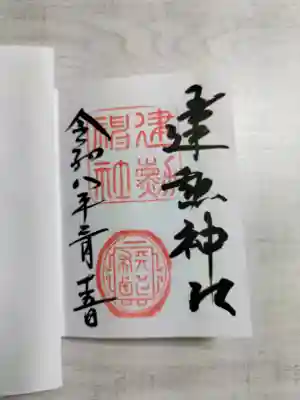 建勲神社
建勲
神社
令和八年二月十五日